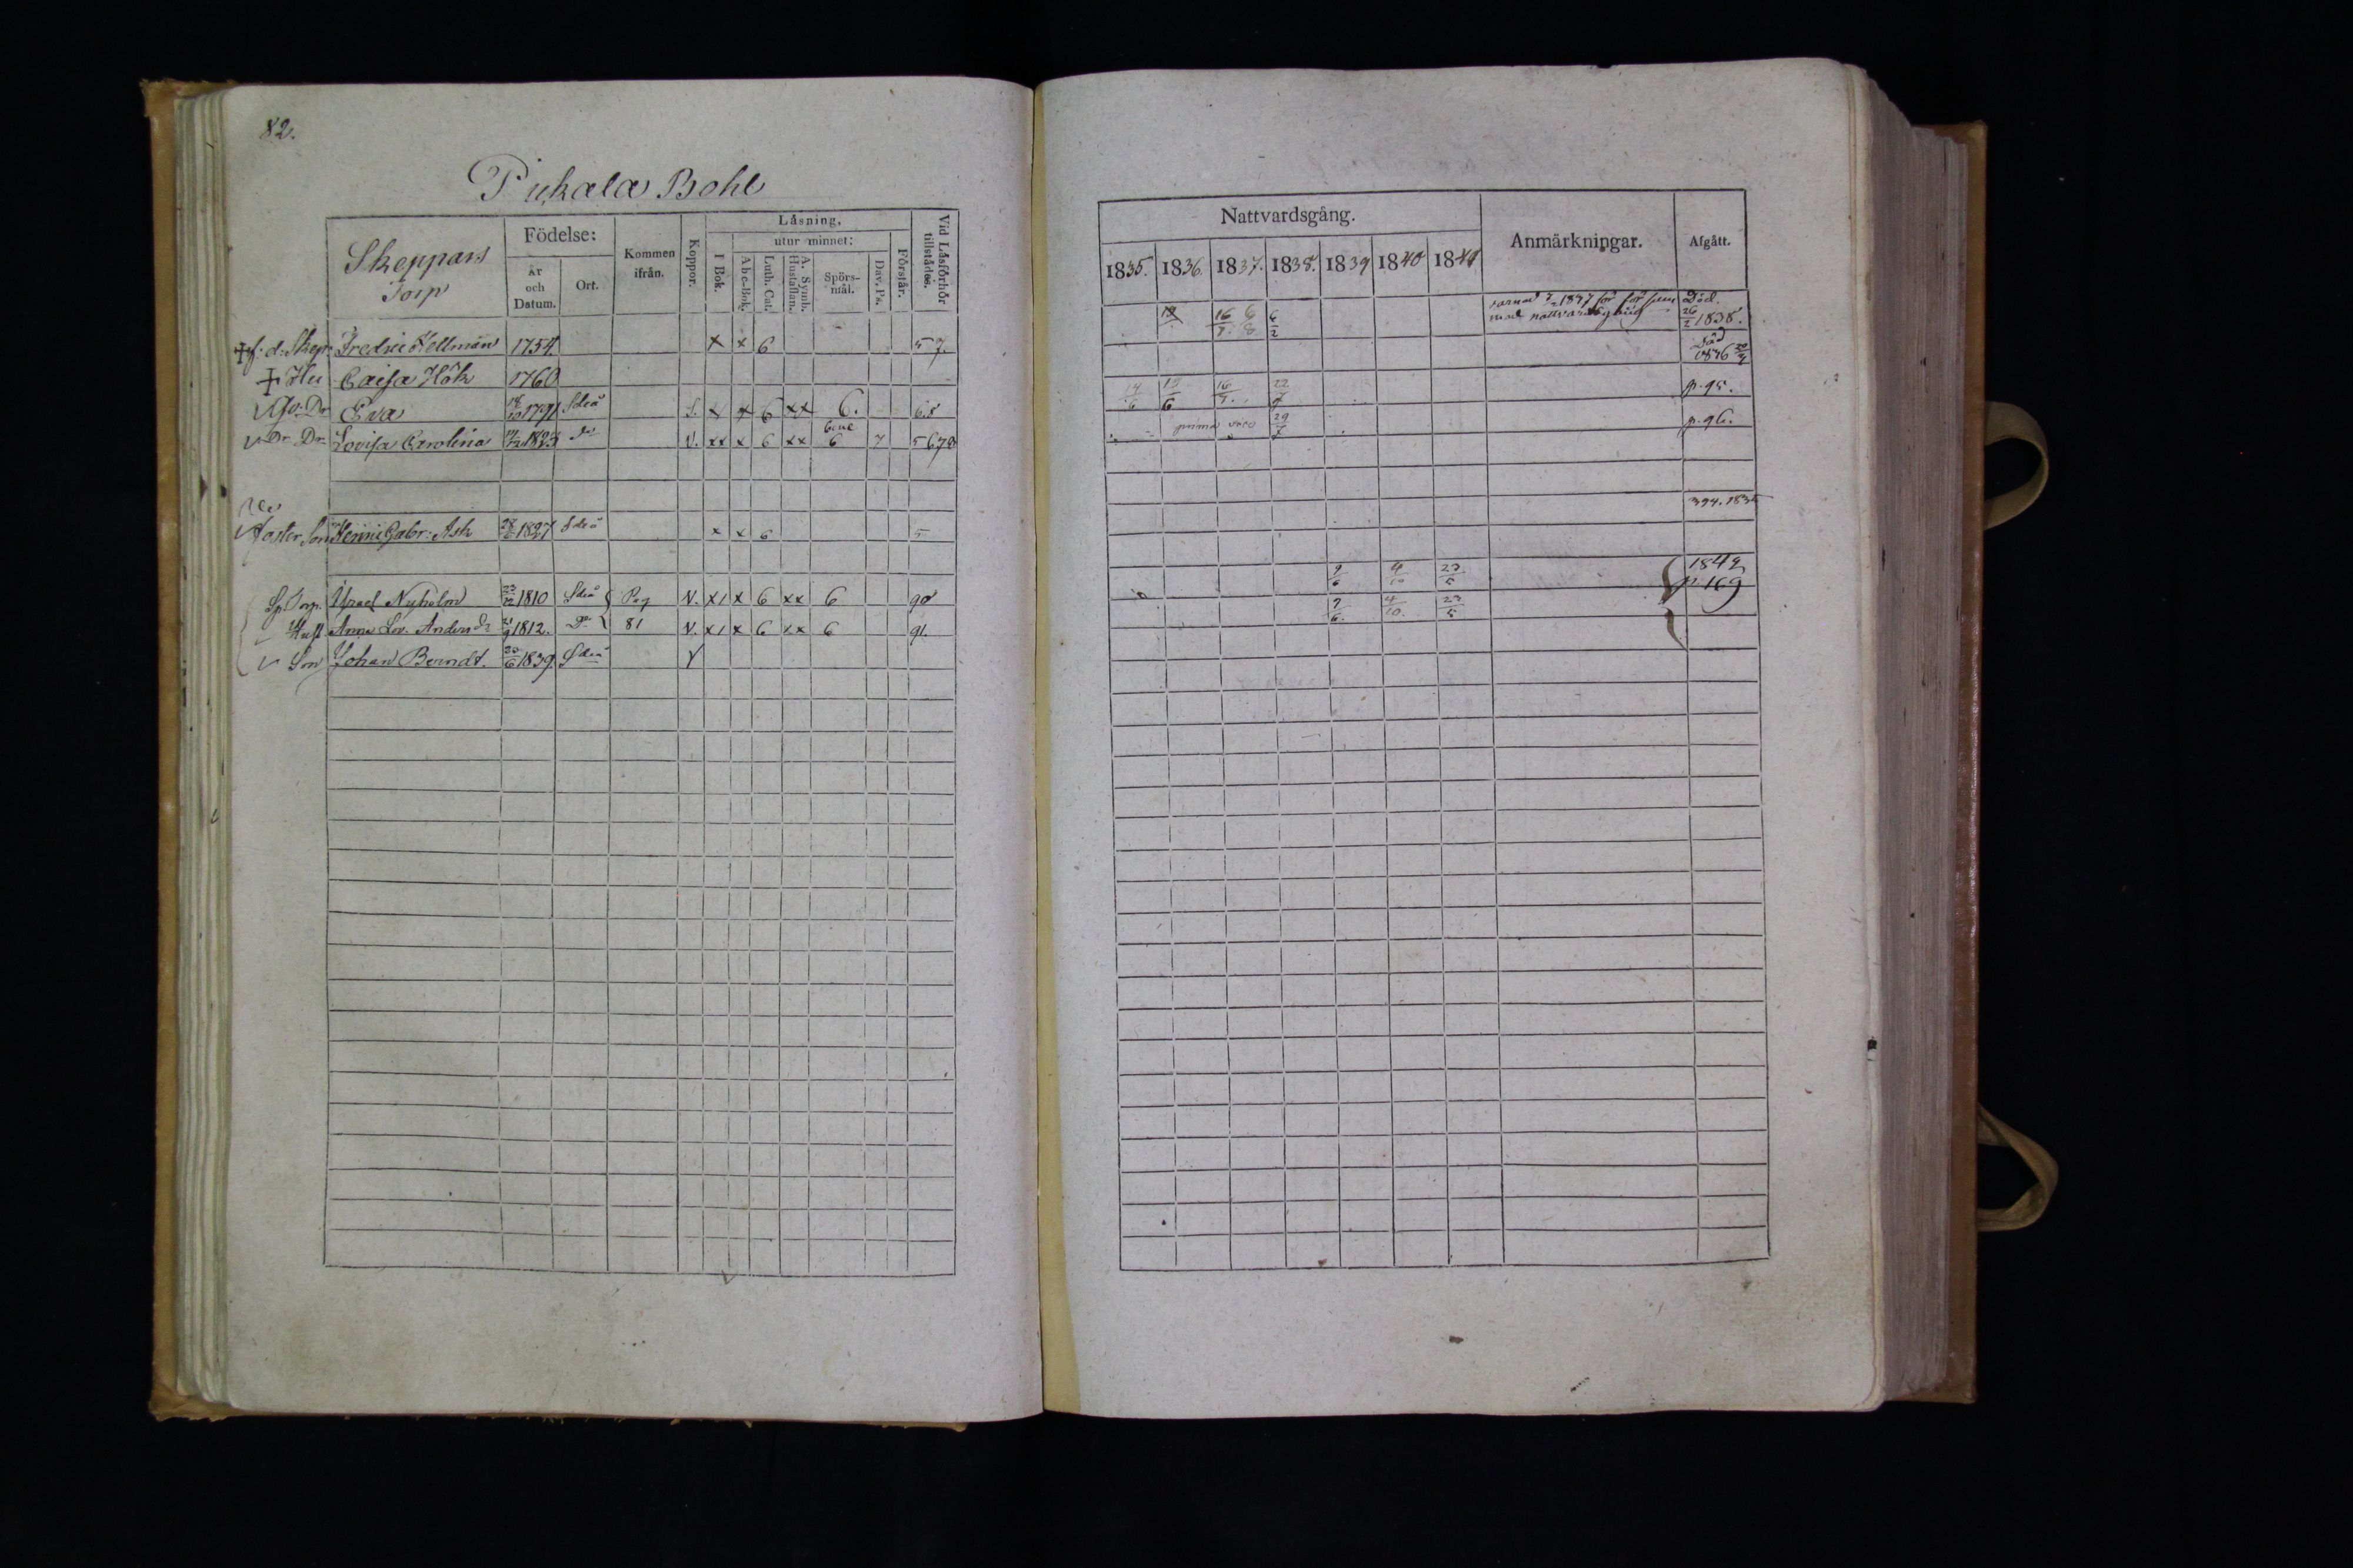 82.
Pukala Bohl
Skeppars Torp
Födelse:
År och Datum.
Ort.
Kommen ifrån.
Koppor.
Läsning,
I Bok.
utur minnet:
Abc-Bok.
Luth. Cat.
A. Symb. Hustaflan.
Spörs-mål.
Dav. Ps.
Förstår.
Vid Läsförhör tillstädes.
Nattvardsgång.
1835. 1836. 1837. 1838. 1839 1840 1841
Anmärkningar.
Afgått.
f. d. Skepr Fredric Hellman 1754. x x 6 57. 16 6 2 Död. 26/2 1838.
Hu Caisa Hök 1760 Död 1836
Do Eva 18/10 1791 Sdeå S. x x 6 xx 6. 68 14/6 15/6 16 22/7 p. 95.
Dr. Dr. Lovisa Carolina 1823 do V. xx x 6 xx 6 7 5678 prima vice 29/7 p. 96.
Son Henric Gabr: Ash 28/6 1827 Sdeå x x 6 5 394. 1835
Torp. Israel Nyholm 23/12 1810 Sdeå Pag N. x1 x 6 xx 6 90 9/6 4/10 23/5 1842 p. 169
Hust Anna Lov. Andersdr 21/9 1812. Do 81 N. x1 x 6 xx 6 91. 9/6 4/10. 23/5
Son Johan Berndt. 25/6 1839 Sdeå V